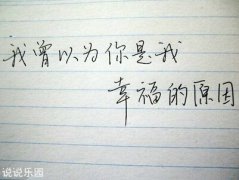 我曾以为你是我
幸福的原因
说说乐园